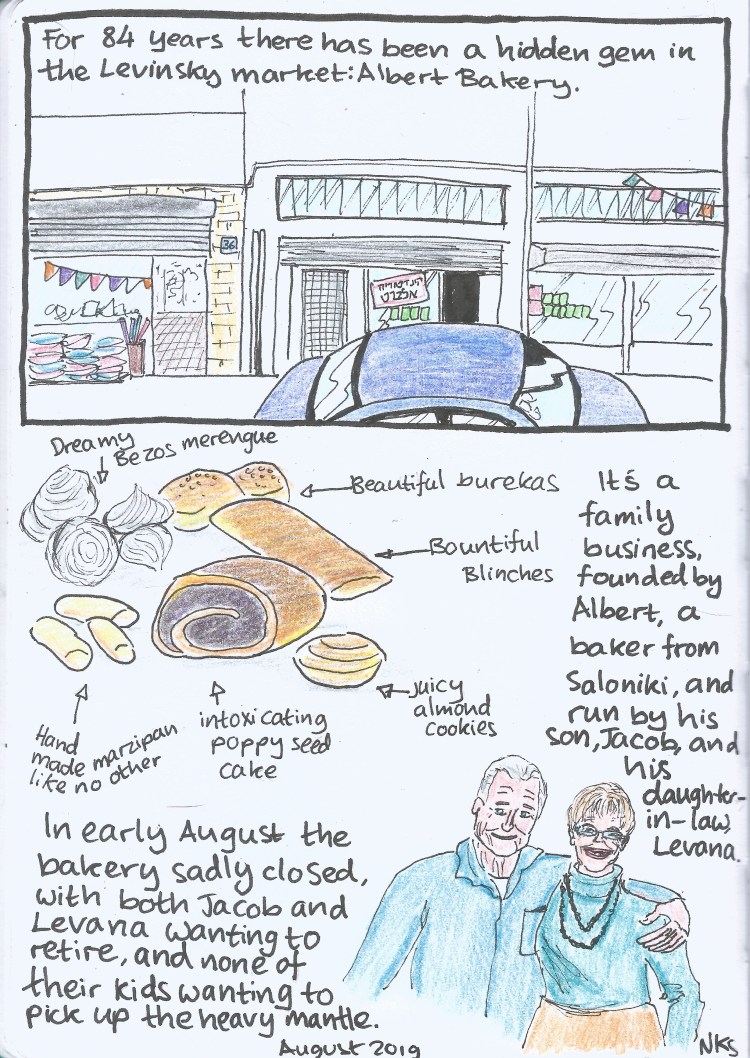 For 84 years there has been a hidden gem in
the Levinsky market: Albert Bakery.
36
קונדיטוריה
אלברט
Dreamy
Bezos merengue
Beautiful burekas
Bountiful
Blinches
Juicy
almond
cookies
intoxicating
poppy seed
cake
Hand
made marzipan
like no other
It's a
family
business,
founded by
Albert, a
baker from
Saloniki, and
run by his
son, Jacob, and
his
daughter-
in-law,
Levana.
In early August the
bakery sadly closed,
with both Jacob and
Levana wanting to
retire, and none of
their kids wanting to
pick up the heavy mantle.
August 2019
NKS